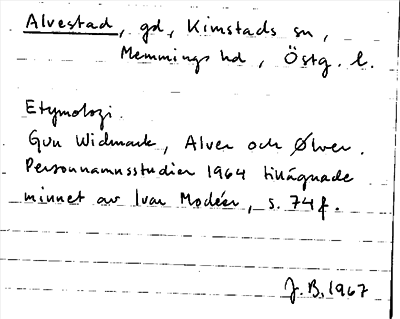 Alvestad, gd, Kimstads sn,
Memmings hd, Östg. l.
Etymologi.
Gun Widmark, Alver och Ølver.
Personnamnsstudier 1964 tillägnade
minnet av Ivar Modéer, s. 74 f.
J. B. 1967